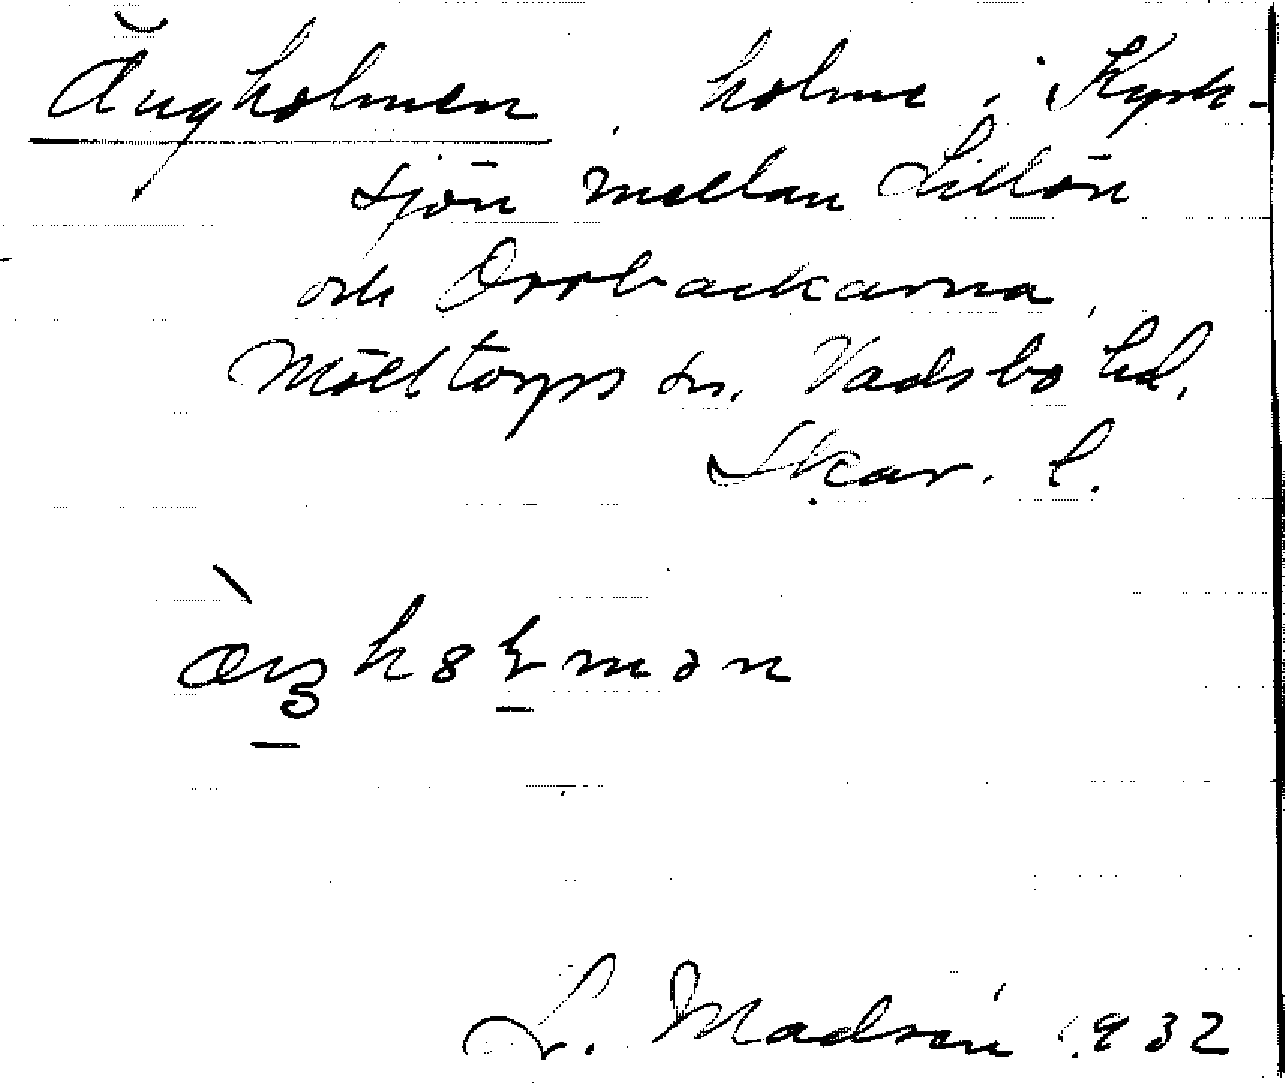 Ängholmen, holme i Kyrk-
sjön mellan Lillön
och Orrbackarna,
Mölltorps sn. Vadsbo hd.
Skar. l.
L. Madsén 1932